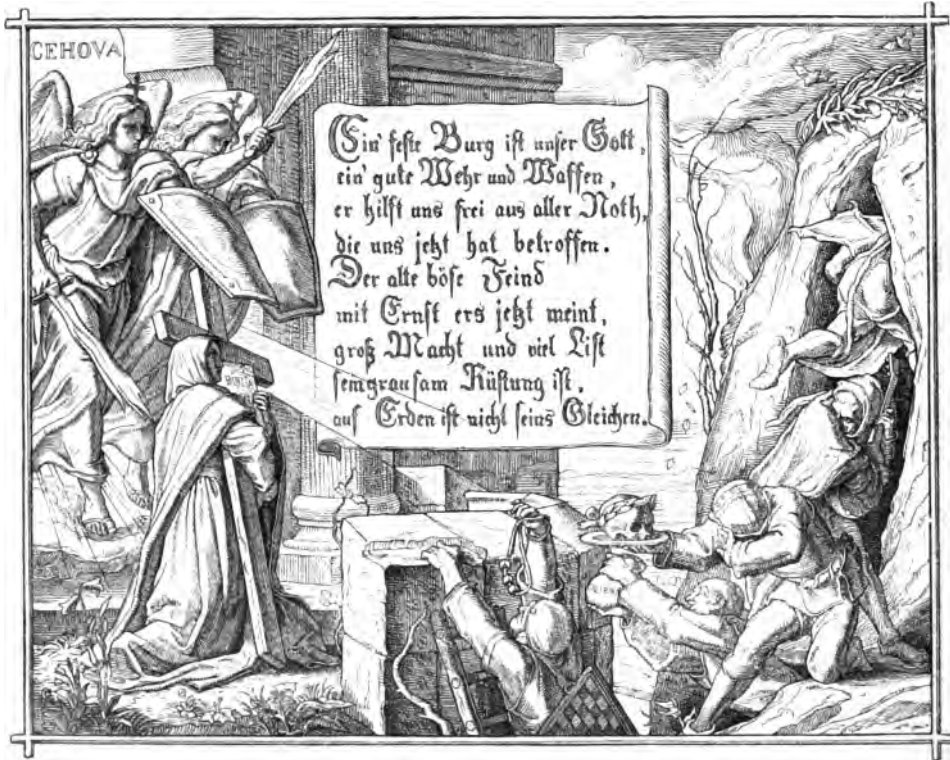 CEHOVA
Ein' feste Burg ist unser Gott,
ein' gute Wehr und Waffen,
er hilft uns frei aus aller Noth,
die uns jetzt hat betroffen.
Der alte böse Feind
mit Ernst ers jetzt meint,
groß Macht und viel List
sein grausam Rüstung ist,
auf Erden ist nicht seins Gleichen.